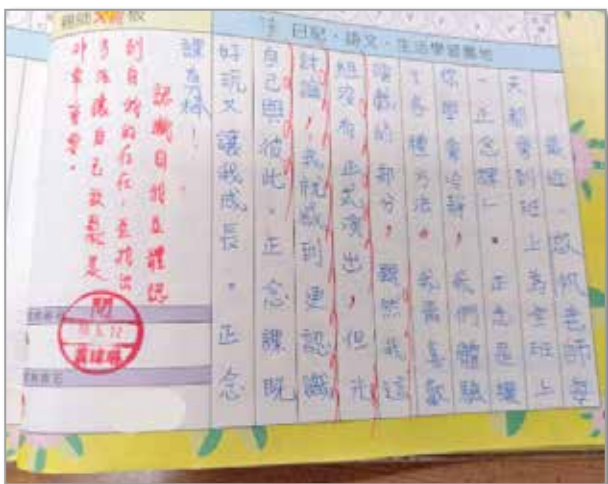 日記・語文・生活學習園地
最近，老師每
天都會到班上為全班上
「正念課」。正念是讓
你學會冷靜，我們體驗
了各種方法。我最喜歡
演戲的部分，雖然我這
組沒有正式演出，但光
討論，我就感到更認識
自己與彼此。正念課既
好玩又讓我成長。正念
課真棒！
親師交流板
認識自我並確認
到自我的存在，並找出
方法讓自己放鬆是
非常重要。
閱